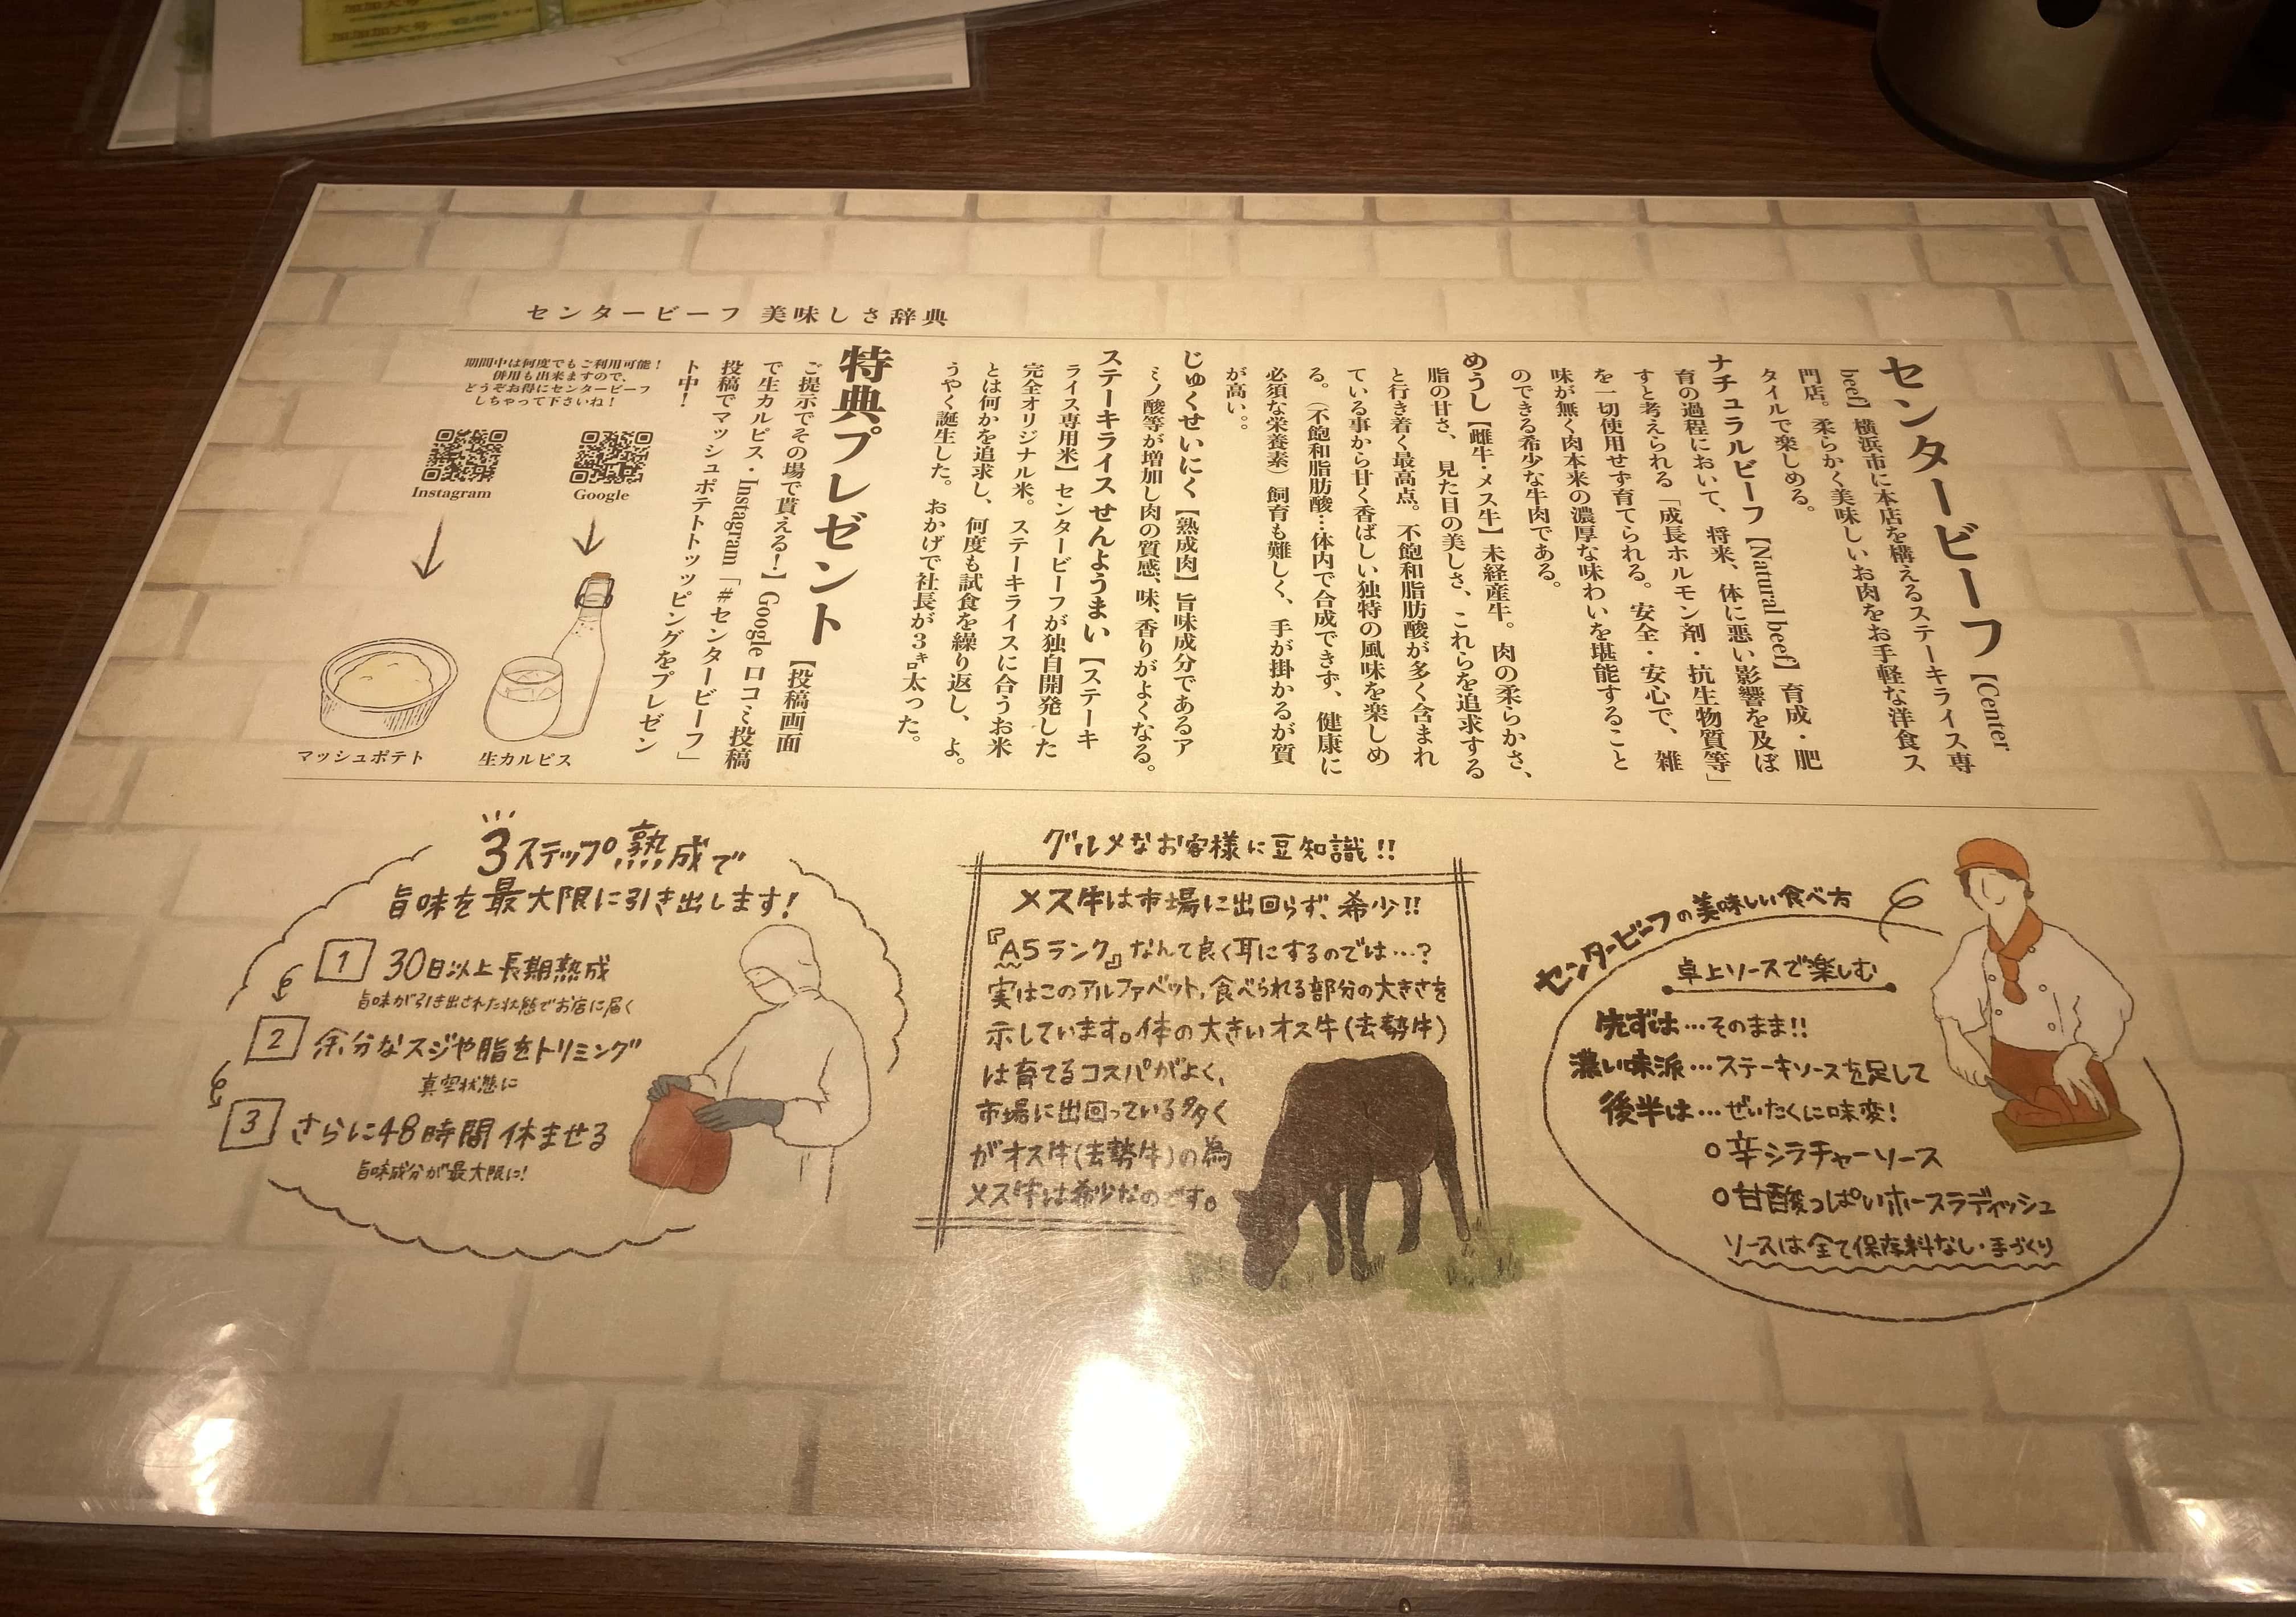 センタービーフ 美味しさ辞典
センタービーフ【Center
beef】横浜市に本店を構えるステーキライス専
門店。柔らかく美味しいお肉をお手軽な洋食ス
タイルで楽しめる。
ナチュラルビーフ【Natural beef】育成・肥
育の過程において、将来、体に悪い影響を及ぼ
すと考えられる「成長ホルモン剤・抗生物質等」
を一切使用せず育てられる。安全・安心で、雑
味が無く肉本来の濃厚な味わいを堪能すること
のできる希少な牛肉である。
めうし【雌牛・メス牛】未経産牛。肉の柔らかさ、
脂の甘さ、見た目の美しさ、これらを追求する
と行き着く最高点。不飽和脂肪酸が多く含まれ
ている事から甘く香ばしい独特の風味を楽しめ
る。（不飽和脂肪酸…体内で合成できず、健康に
必須な栄養素）飼育も難しく、手が掛かるが質
が高い。。
じゅくせいにく【熟成肉】旨味成分であるア
ミノ酸等が増加し肉の質感、味、香りがよくなる。
ステーキライスせんようまい【ステーキ
ライス専用米】センタービーフが独自開発した
完全オリジナル米。ステーキライスに合うお米
とは何かを追求し、何度も試食を繰り返し、よ。
うやく誕生した。おかげで社長が3㌔太った。
特典プレゼント【投稿画面
ご提示でその場で貰える！】Google 口コミ投稿
で生カルピス・Instagram「#センタービーフ」
投稿でマッシュポテトトッッピングをプレゼン
ト中！
期間中は何度でもご利用可能！
併用も出来ますので、
どうぞお得にセンタービーフ
しちゃって下さいね！
Google
Instagram
生カルピス
マッシュポテト
3ステップ熟成で
旨味を最大限に引き出します!
1 30日以上長期熟成
旨味が引き出された状態でお店に届く
2 余分なスジや脂をトリミング
真空状態に
3 さらに48時間休ませる
旨味成分が最大限に!
グルメなお客様に豆知識!!
メス牛は市場に出回らず、希少!!
『A5ランク』なんて良く耳にするのでは…?
実はこのアルファベット、食べられる部分の大きさを
示しています。体の大きいオス牛(去勢牛)
は育てるコスパがよく、
市場に出回っている多く
がオス牛(去勢牛)の為
メス牛は希少なのです。
センタービーフの美味しい食べ方
卓上ソースで楽しむ
先ずは…そのまま!!
濃い味派…ステーキソースを足して
後半は…ぜいたくに味変!
○辛シラチャーソース
○甘酸っぱいホースラディッシュ
ソースは全て保存料なし・手づくり